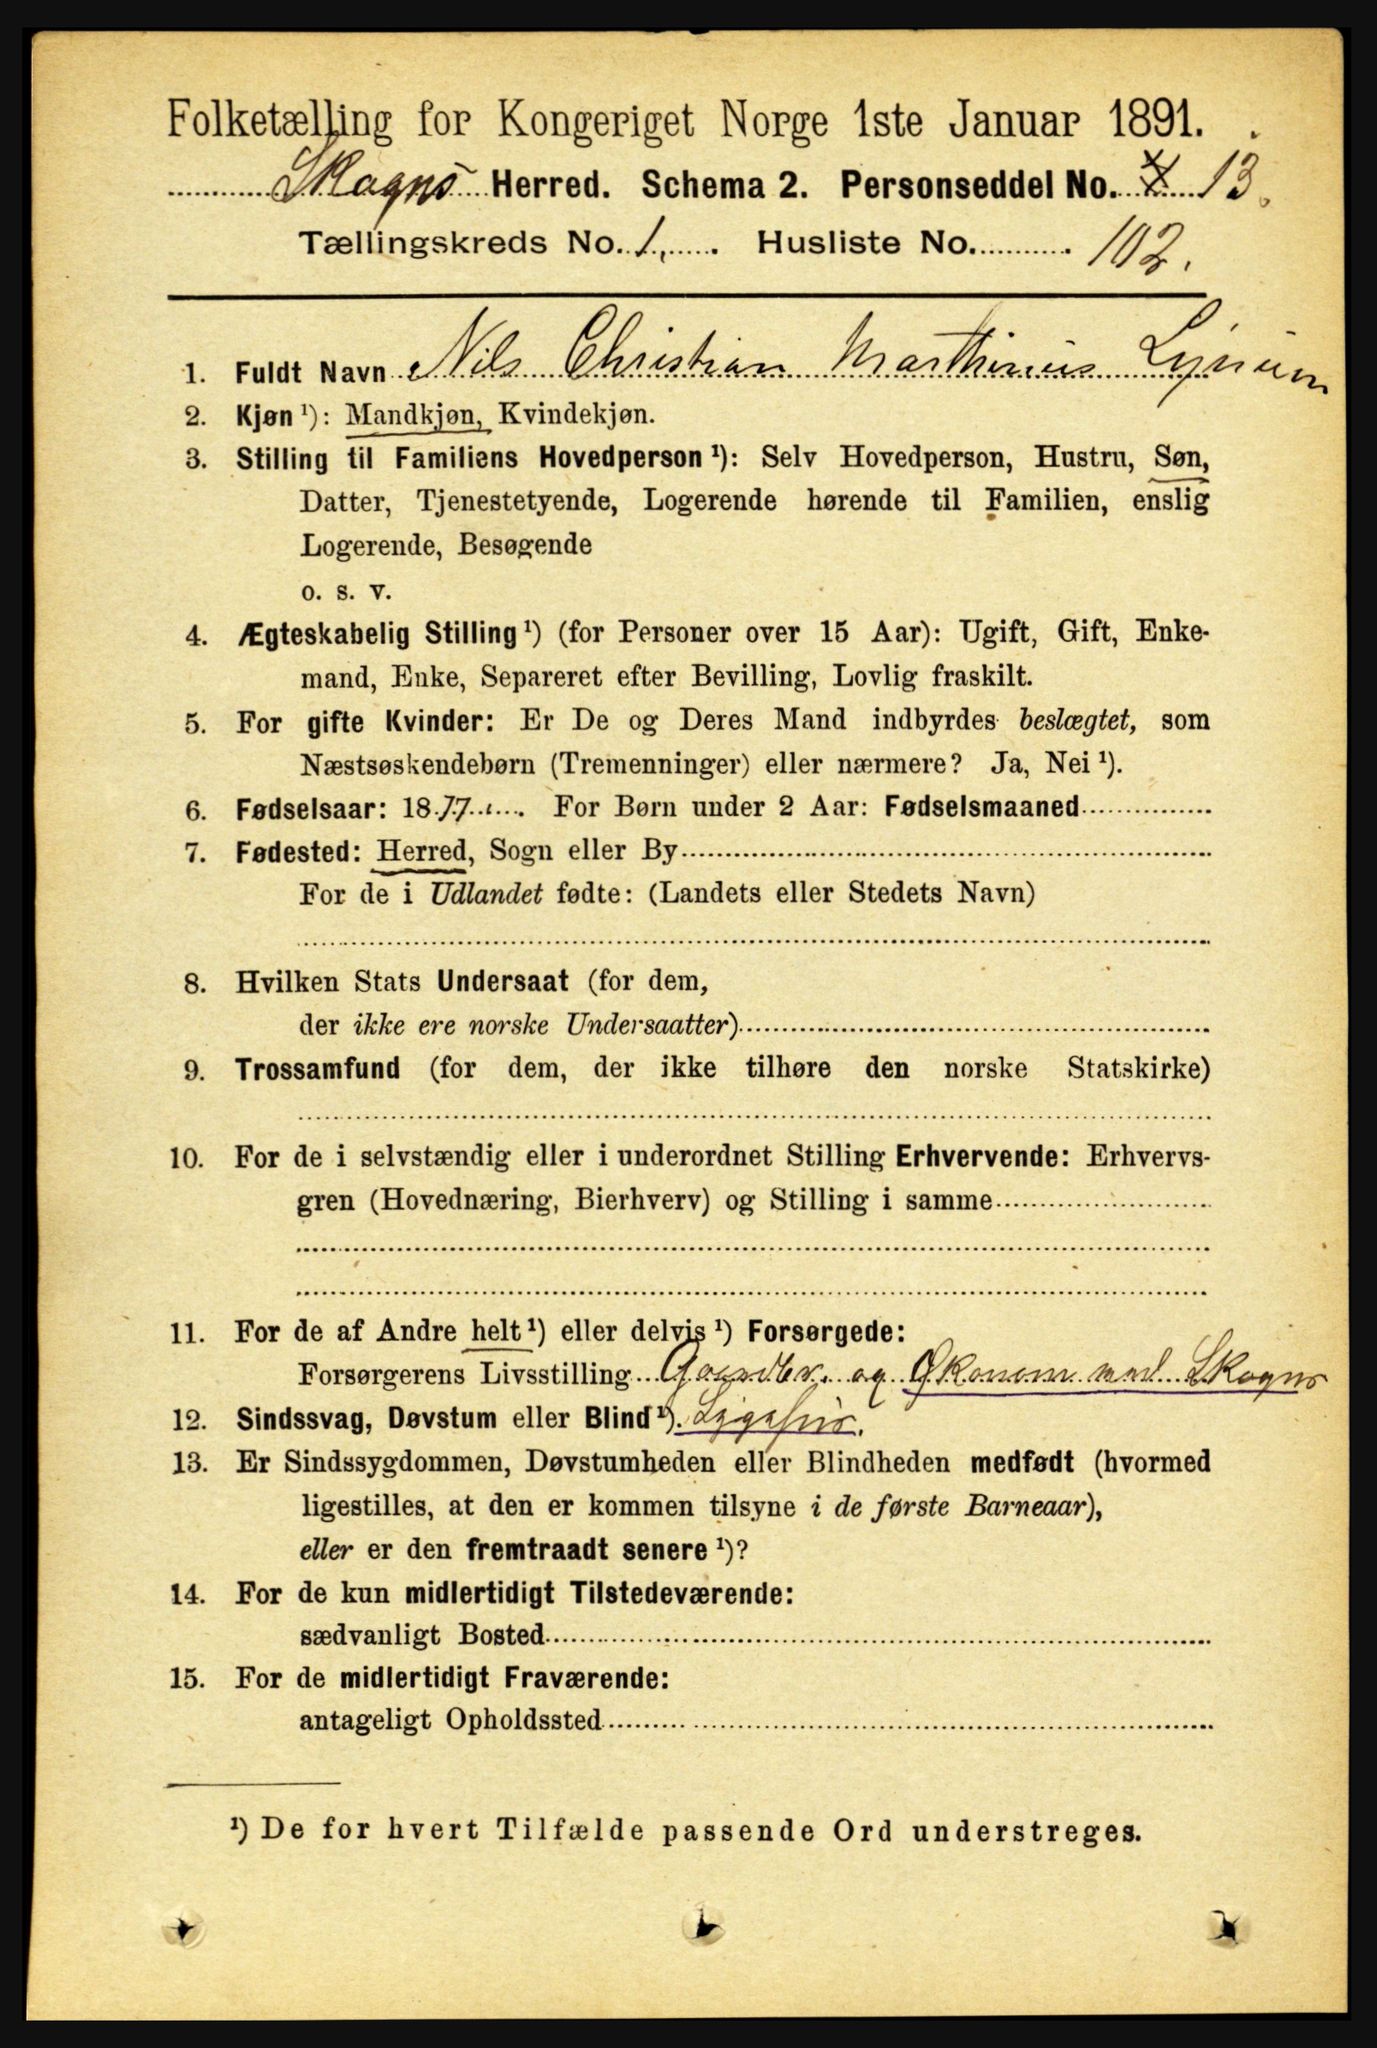 Folketælling for Kongeriget Norge 1ste Januar 1891.
Skogns Herred. Schema 2. Personseddel No. 13.
Tællingskreds No. 1. Husliste No. 102.
1. Fuldt Navn Nils Christian Marthinius Lynum
2. Kjøn ¹): Mandkjøn, Kvindekjøn.
3. Stilling til Familiens Hovedperson ¹): Selv Hovedperson, Hustru, Søn,
Datter, Tjenestetyende, Logerende hørende til Familien, enslig
Logerende, Besøgende
o. s. v.
4. Ægteskabelig Stilling ¹) (for Personer over 15 Aar): Ugift, Gift, Enke-
mand, Enke, Separeret efter Bevilling, Lovlig fraskilt.
5. For gifte Kvinder: Er De og Deres Mand indbyrdes beslægtet, som
Næstsøskendebørn (Tremenninger) eller nærmere? Ja, Nei ¹).
6. Fødselsaar: 1877. For Børn under 2 Aar: Fødselsmaaned
7. Fødested: Herred, Sogn eller By
For de i Udlandet fødte: (Landets eller Stedets Navn)
8. Hvilken Stats Undersaat (for dem,
der ikke ere norske Undersaatter)
9. Trossamfund (for dem, der ikke tilhøre den norske Statskirke)
10. For de i selvstændig eller i underordnet Stilling Erhvervende: Erhvervs-
gren (Hovednæring, Bierhverv) og Stilling i samme
11. For de af Andre helt ¹) eller delvis ¹) Forsørgede:
Forsørgerens Livsstilling Gaardbr. og Økonom ved Skogns
12. Sindssvag, Døvstum eller Blind ¹). Sygehus.
13. Er Sindssygdommen, Døvstumheden eller Blindheden medfødt (hvormed
ligestilles, at den er kommen tilsyne i de første Barneaar),
eller er den fremtraadt senere ¹)?
14. For de kun midlertidigt Tilstedeværende:
sædvanligt Bosted
15. For de midlertidigt Fraværende:
antageligt Opholdssted
¹) De for hvert Tilfælde passende Ord understreges.